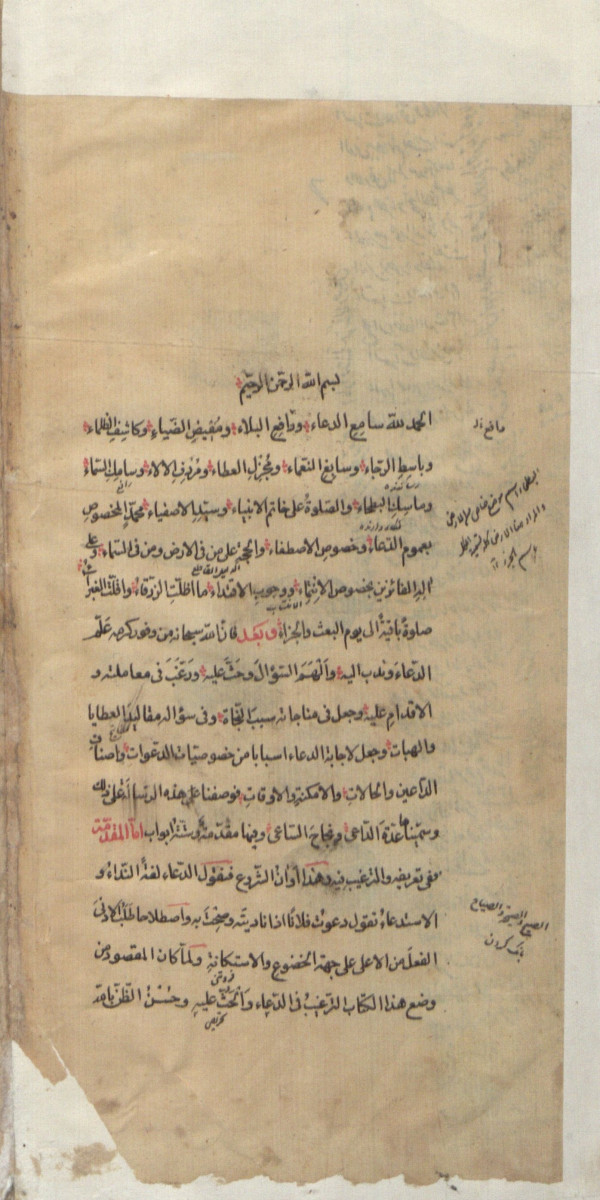 بسم الله الرحمن الرحيم
الحمد لله سامع الدعاء ودافع البلاء ومفيض الضياء وكاشف الظلماء
وباسط الرجاء وسابغ النعماء ومجزل العطاء ومردف الآلاء وسامك السماء
وماسك البطحاء والصلوة على خاتم الانبياء وسيد الاصفياء محمد المخصوص
بعموم الدعاء وخصوص الاصطفاء والحجة على من فى الارض ومن فى السماء وعلى
آله الفائزين بخصوص الانتماء ووجوب الاقتداء ما اظلت الزرقاء واقلت الغبراء
صلوة باقية الى يوم البعث والجزاء وبعد فان الله سبحانه من وفور كرمه علم
الدعاء وندب اليه والهم السؤال وحث عليه ورغب فى معاملته و
الاقدام عليه وجعل فى مناجاته سبب النجاة وفى سؤاله مقاليد العطايا
والهبات وجعل لاجابة الدعاء اسبابا من خصوصيات الدعوات واصناف
الداعين والحالات والامكنة والاوقات فوضعنا هذه الرسالة على ذلك
وسميناها عدة الداعى ونجاح الساعى وفيها مقدمة وستة ابواب اما المقدمة
ففى تعريفه والترغيب فيه وهذا اوان الشروع فنقول الدعاء لغة النداء و
الاستدعاء تقول دعوت فلانا اذا ناديته وصحت به واصطلاحا طلب الادنى
الفعل من الاعلى على جهة الخضوع والاستكانة ولما كان المقصود من
وضع هذا الكتاب الترغيب فى الدعاء والحث عليه وحسن الظن بالله